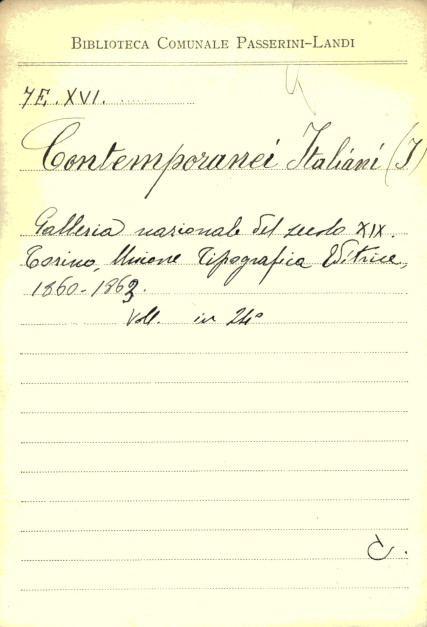 BIBLIOTECA COMUNALE PASSERINI-LANDI
7E.XVI.
Contemporanei Italiani (I)
Galleria nazionale del secolo XIX.
Torino, Unione Tipografica Editrice,
1860-1863.
Voll. in 24°
C.